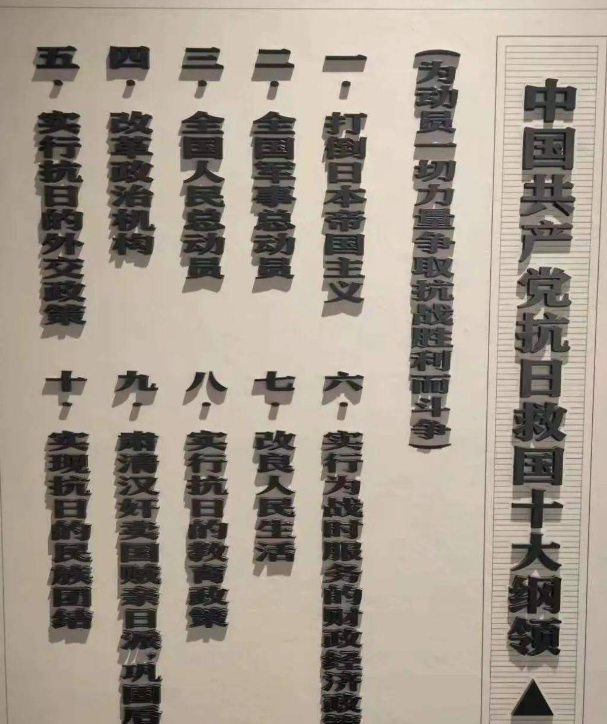 中国共产党抗日救国十大纲领
(为动员一切力量争取抗战胜利而斗争)
一·打倒日本帝国主义
二·全国军事总动员
三·全国人民总动员
四·改革政治机构
五·实行抗日的外交政策
六·实行为战时服务的财政经济政策
七·改良人民生活
八·实行抗日的教育政策
九·肃清汉奸卖国贼亲日派,巩固后
十·实现抗日的民族团结